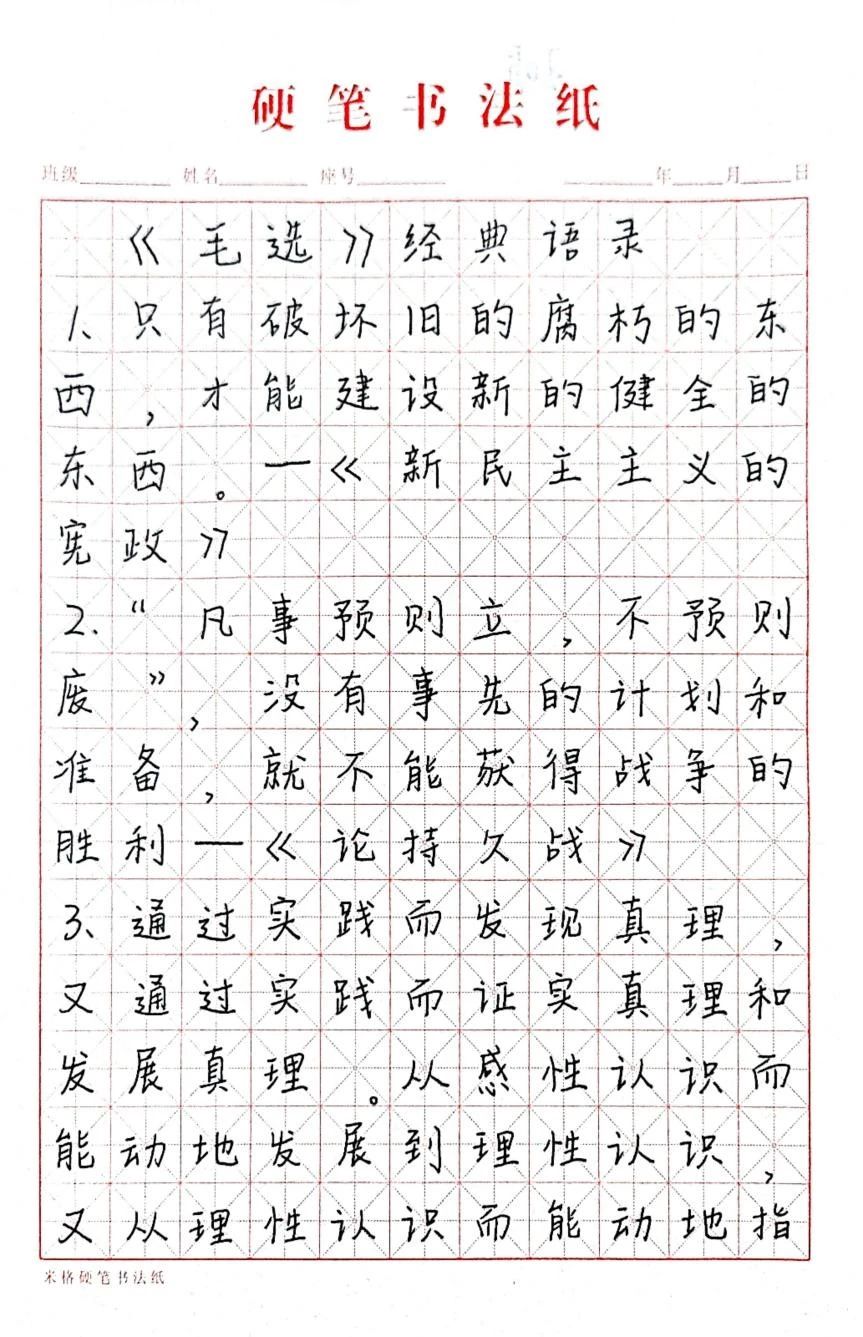 硬笔书法纸
班级 姓名 座号 年 月 日
《毛选》经典语录
1、只有破坏旧的腐朽的东
西，才能建设新的健全的
东西。—《新民主主义的
宪政》
2.“凡事预则立，不预则
废”，没有事先的计划和
准备，就不能获得战争的
胜利—《论持久战》
3、通过实践而发现真理，
又通过实践而证实真理和
发展真理。从感性认识而
能动地发展到理性认识，
又从理性认识而能动地指
米格硬笔书法纸